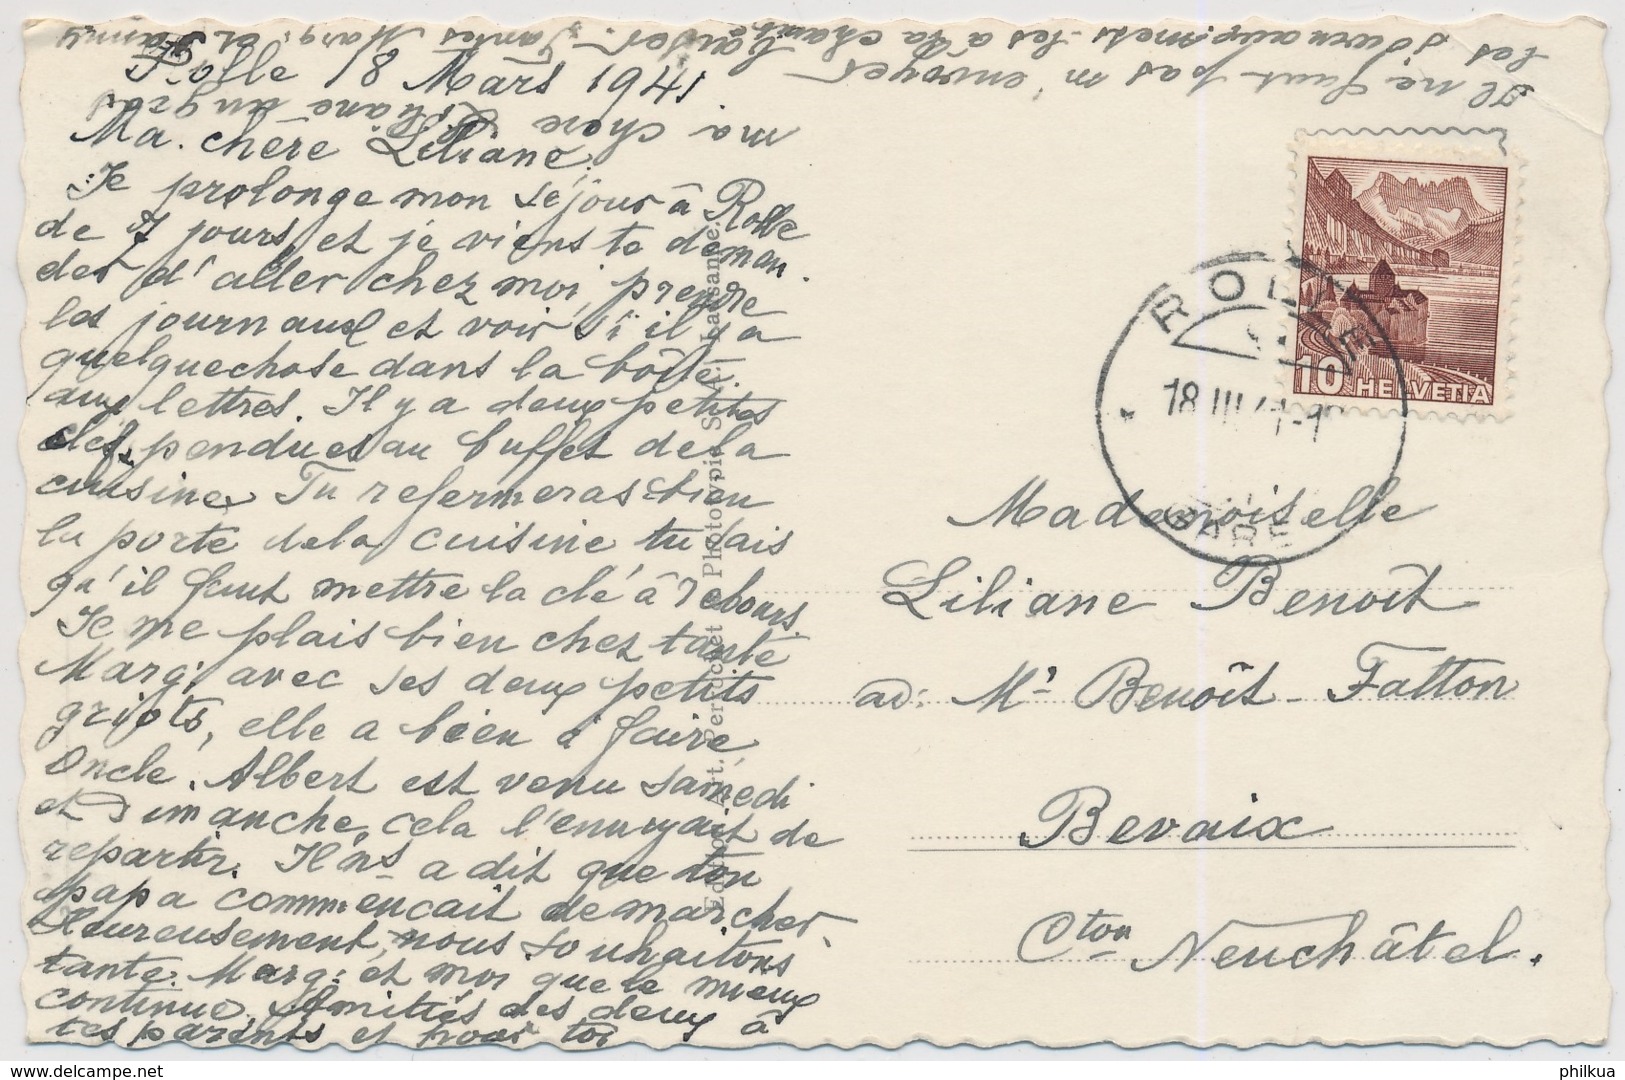 Rolle 18 Mars 1941
Ma chère Liliane
Je prolonge mon séjour à Rolle
de 7 jours et je viens te deman-
der d'aller chez moi, prendre
les journaux et voir s'il y a
quelquechose dans la boîte
aux lettres. Il y a deux petites
clefs pendues au buffet de la
cuisine Tu refermeras bien
la porte de la cuisine tu sais
qu'il faut mettre la clé à rebours.
Je me plais bien chez tante
Marg. avec ses deux petits
griots, elle a bien à faire
Oncle Albert est venu samedi
et Dimanche, cela l'ennuyait de
repartir. Il ns a dit que ton
papa commencait de marcher
Heureusement, nous souhaitons
tante Marg: et moi que le mieux
continue. Amitiés des deux à
tes parents et pour toi
ma chère Liliane un gros
baiser. Tantes Marg. et Fanny
Il ne faut pas m'envoyer
les journaux, mets-les à la chambre
Edition Art. Perrochet Phototypie S.A. Lausanne.
10 HELVETIA
ROLLE
18 III 41-1
GARE
Mademoiselle
Liliane Benoît
ad: Mr Benoît-Fatton
Bevaix
Cton Neuchâtel.
philkua